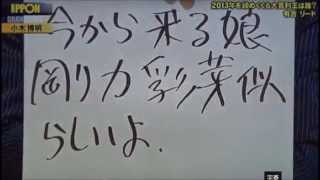 IPPON
GRAND
小木博明
2013年を締めくくる大喜利王は誰?
有吉 リード
今から来る娘
剛力彩芽似
らしいよ.